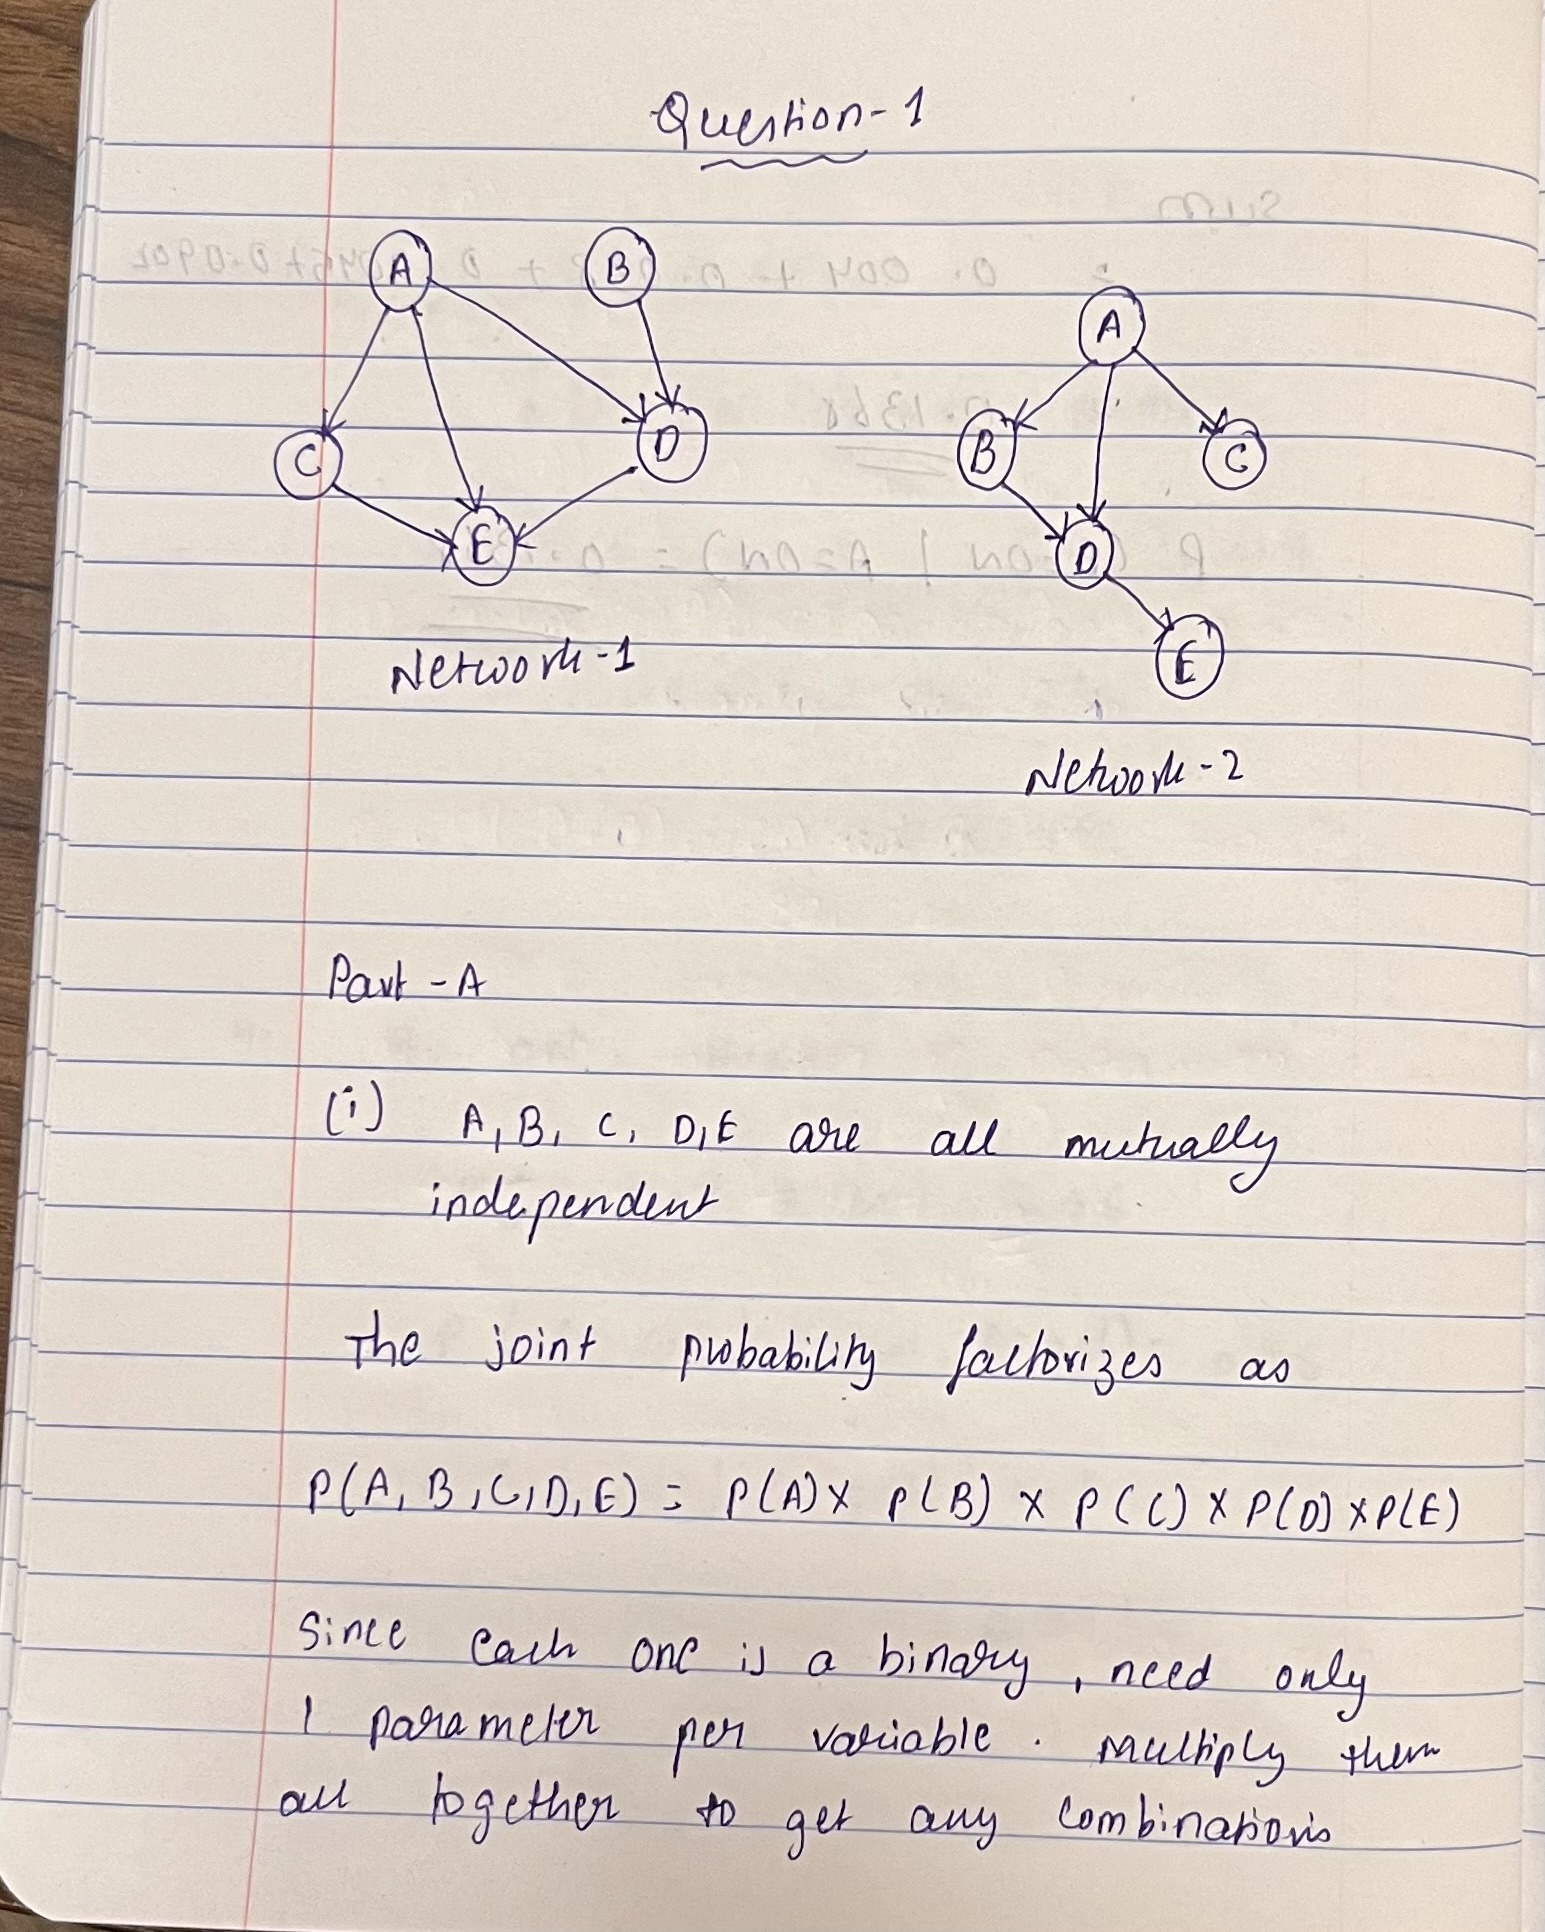 Question-1
A
B
C
D
E
Network-1
A
B
C
D
E
Network-2
Part - A
(i) A, B, C, D, E are all mutually
independent
The joint probability factorizes as
P(A, B, C, D, E) = P(A) x P(B) x P(C) x P(D) x P(E)
Since each one is a binary, need only
1 parameter per variable. Multiply them
all together to get any combinations